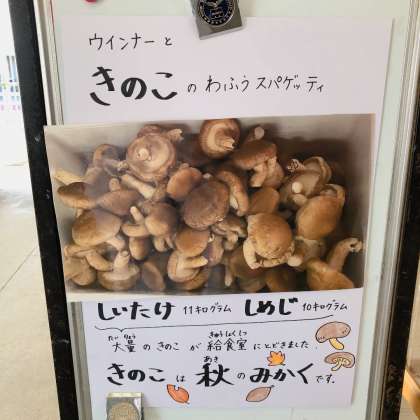 ウインナーと
きのこのわふうスパゲッティ
しいたけ 11キログラム しめじ 10キログラム
たいりょう きゅうしょくしつ
大量のきのこが給食室にとどきました。
あき
きのこは秋のみかくです。